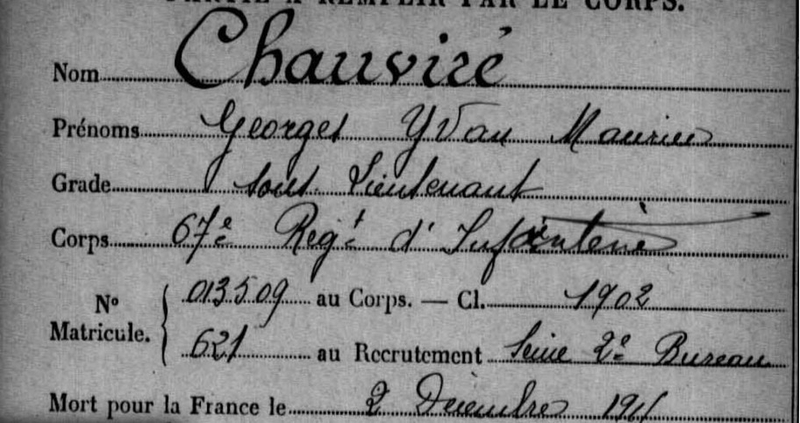 PARTIE A REMPLIR PAR LE CORPS.
Nom Chauviré
Prénoms Georges Yvan Maurice
Grade Sous-Lieutenant
Corps 67e Regt d'Infanterie
No Matricule. 013509 au Corps. — Cl. 1902
621 au Recrutement Seine 2e Bureau
Mort pour la France le 2 Décembre